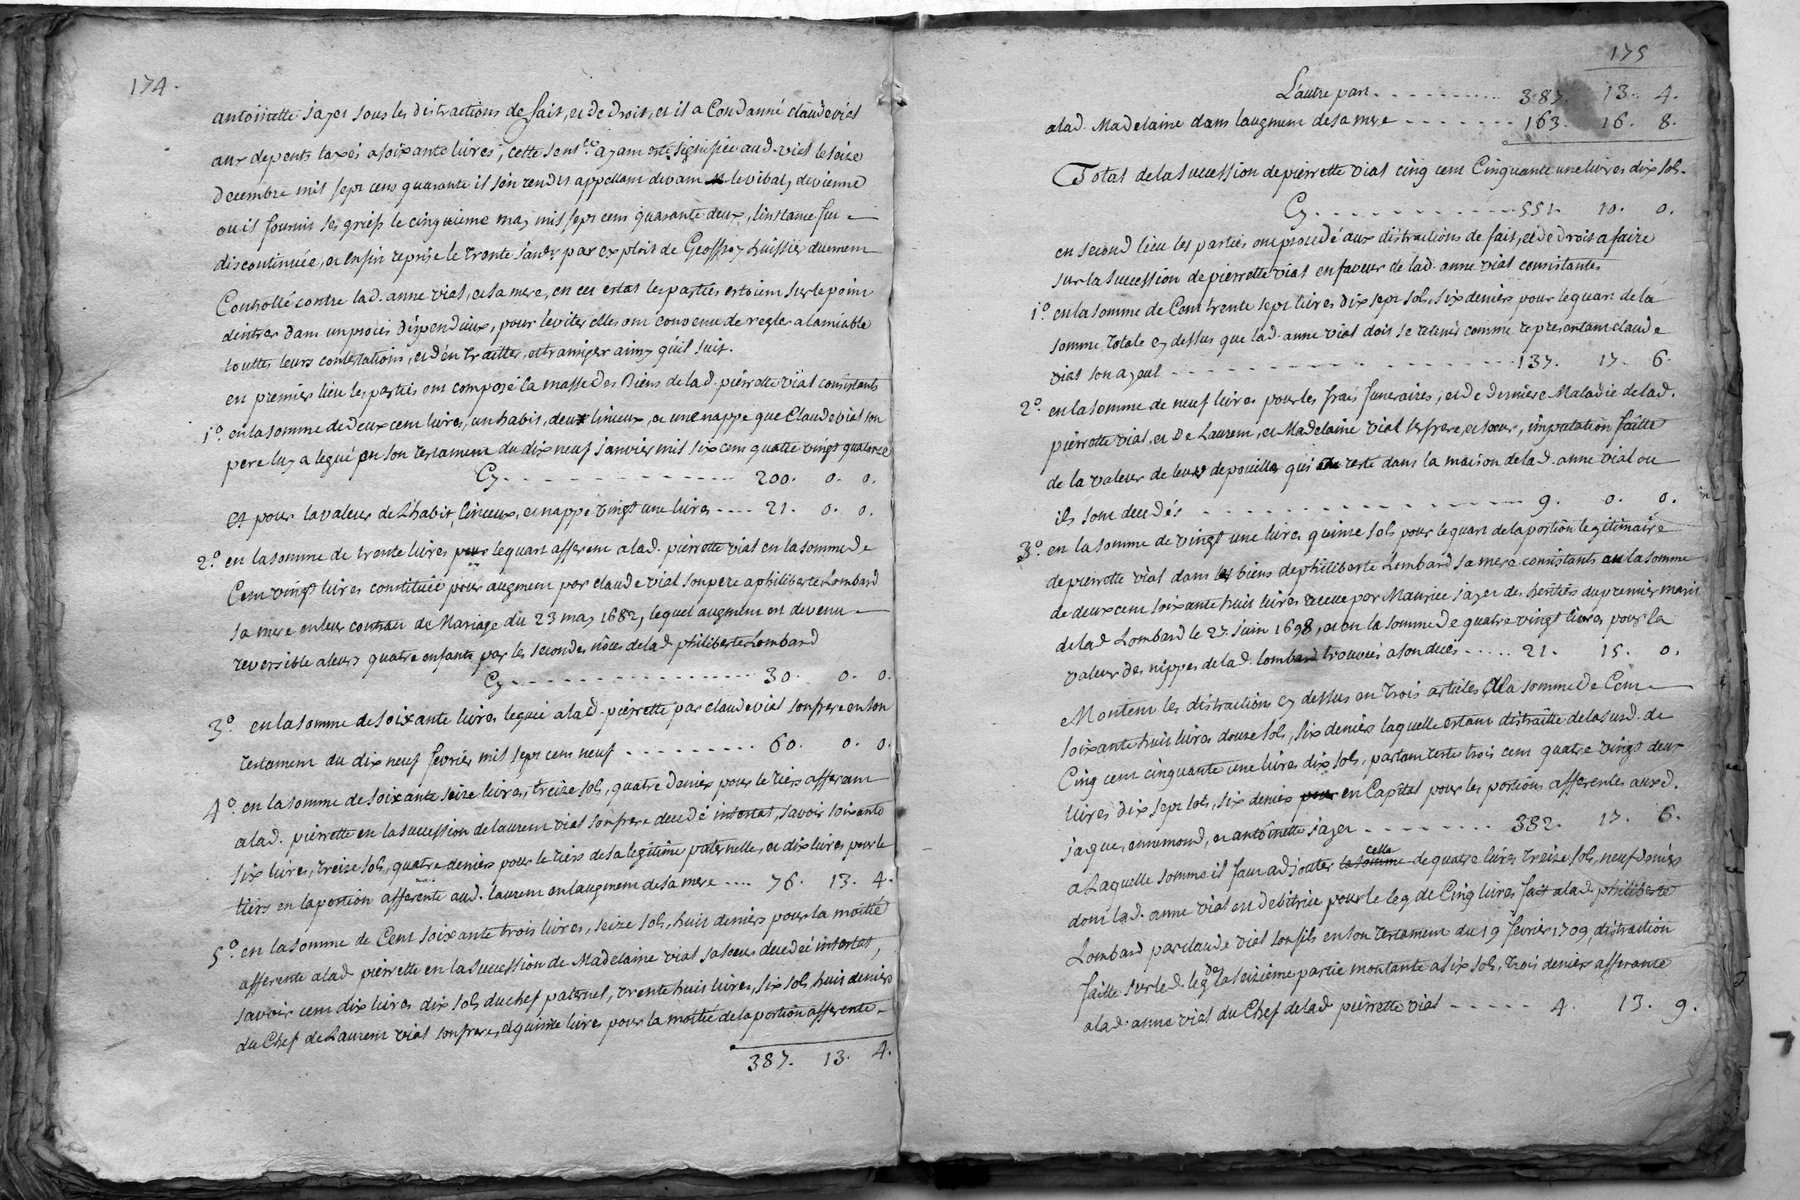 174.
antoinette jayer sous les distractions de fait, et de Droit, et il a Condanné claude vial
aux depents taxés a soixante livres, cette sent.ce ayant esté signifiée aud. vial le seize
decembre mil sept cens quarante il s'en rendit appellant devant le vibaly de vienne
ou il fournit ses griefs le cinquieme may mil sept cens quarante deux, l'instance fut
discontinuée, et enfin reprise le trente par exploit de Geoffroy huissier duement
Controllé contre lad. anne vial, et sa mere, en cet estat les parties estoient sur le point
d'entrer dans un procés dispendieux, pour l'eviter elles ont convenu de regler a l'amiable
touttes leurs contestations, et d'en traitter, et transiger ainsy qu'il suit.
en premier lieu les parties ont composé la masse des Biens de lad. pierrette vial consistants
1.° en la somme de deux cent livres, un habit, deux linceux, et une nappe que Claude vial son
pere luy a legué en son testament du dix neuf janvier mil six cens quatre vingt quatorze
Cy . . . 200. 0. 0.
et pour la valeur de l'habit, linceux, et nappe vingt une livre . . . . 21. 0. 0.
2.° en la somme de trente livres pour le quart afferent a lad. pierrette vial en la somme de
Cent vingt livres constituée pour augment par claude vial son pere a philiberte Lombard
sa mere en leur contrat de Mariage du 23 may 1682, lequel augment est devenu
reversible a leurs quatre enfants par les secondes nôces de lad. philiberte Lombard
Cy . . . 30. 0. 0.
3.° en la somme de soixante livres leguée a lad. pierrette par claude vial son frere en son
testament du dix neuf fevrier mil sept cent neuf . . . 60. 0. 0.
4.° en la somme de soixante seize livres, treize sols, quatre deniers pour le tiers afferant
a lad. pierrette en la succession de laurent vial son frere decedé intestat, savoir soixante
six livres, treize sols, quatre deniers pour le tiers de sa legitime paternelle, et dix livres pour le
tiers en la portion afferente aud. laurent en l'augment de sa mere . . . . 76. 13. 4.
5.° en la somme de Cent soixante trois livres, seize sols, huit deniers pour la moitié
afferente a lad. pierrette en la succession de Madelaine vial sa soeur decedée intestat,
savoir cent dix livres dix sols du chef paternel, trente huit livres, six sols huit deniers
du Chef de Laurent vial son frere, et quinze livres pour la moitié de la portion afferente
387. 13. 4.
175
L'autre part . . . 387. 13. 4.
a lad. Madelaine dans l'augment de sa mere . . . 163. 16. 8.
Total de la succession de pierrette vial cinq cent Cinquante une livres dix sols.
Cy . . . 551. 10. 0.
en second lieu les parties ont procedé aux distractions de fait, et de droit a faire
sur la succession de pierrette vial en faveur de lad. anne vial consistantes
1.° en la somme de Cent trente sept livres dix sept sols, six deniers pour le quart de la
somme totale cy dessus que lad. anne vial doit se retenir comme representant claude
vial son ayeul . . . 137. 17. 6.
2.° en la somme de neuf livres pour les frais funeraires, et de derniere Maladie de lad.
pierrette vial, et De Laurent, et Madelaine vial ses frere, et soeur, imputation faitte
de la valeur de leurs depouilles qui reste dans la maison de lad. anne vial ou
ils sont decedés . . . 9. 0. 0.
3.° en la somme de vingt une livre quinze sols pour le quart de la portion legitimaire
de pierrette vial dans les biens de philiberte Lombard sa mere consistants en la somme
de deux cent soixante huit livres receue par Maurice jayer des heritiers du premier mari
de lad. Lombard le 27. juin 1698, et en la somme de quatre vingt livres pour la
valeur des nippes de lad. lombard trouvées a son decès . . . . . 21. 15. 0.
Montent les distractions cy dessus en trois articles a la somme de Cent
soixante huit livres douze sols, six deniers laquelle estant distraitte de la susd. de
Cinq cent cinquante une livres dix sols, partant reste trois cent quatre vingt deux
livres dix sept sols, six deniers pour en Capital pour les portions afferentes auxd.
jaque, ennemond, et antoinette jayer . . . 382. 17. 6.
a Laquelle somme il faut adjouter la somme celle de quatre livres treize sols, neuf deniers
dont lad. anne vial est debitrice pour le leg de Cinq livres fait a lad. philiberte
Lombard par claude vial son fils en son testament du 19 fevrier 1709, distraction
faitte sur led. leg de la seizième partie montante a six sols, trois deniers afferante
a lad. anne vial du Chef de lad. pierrette vial . . . . . 4. 13. 9.